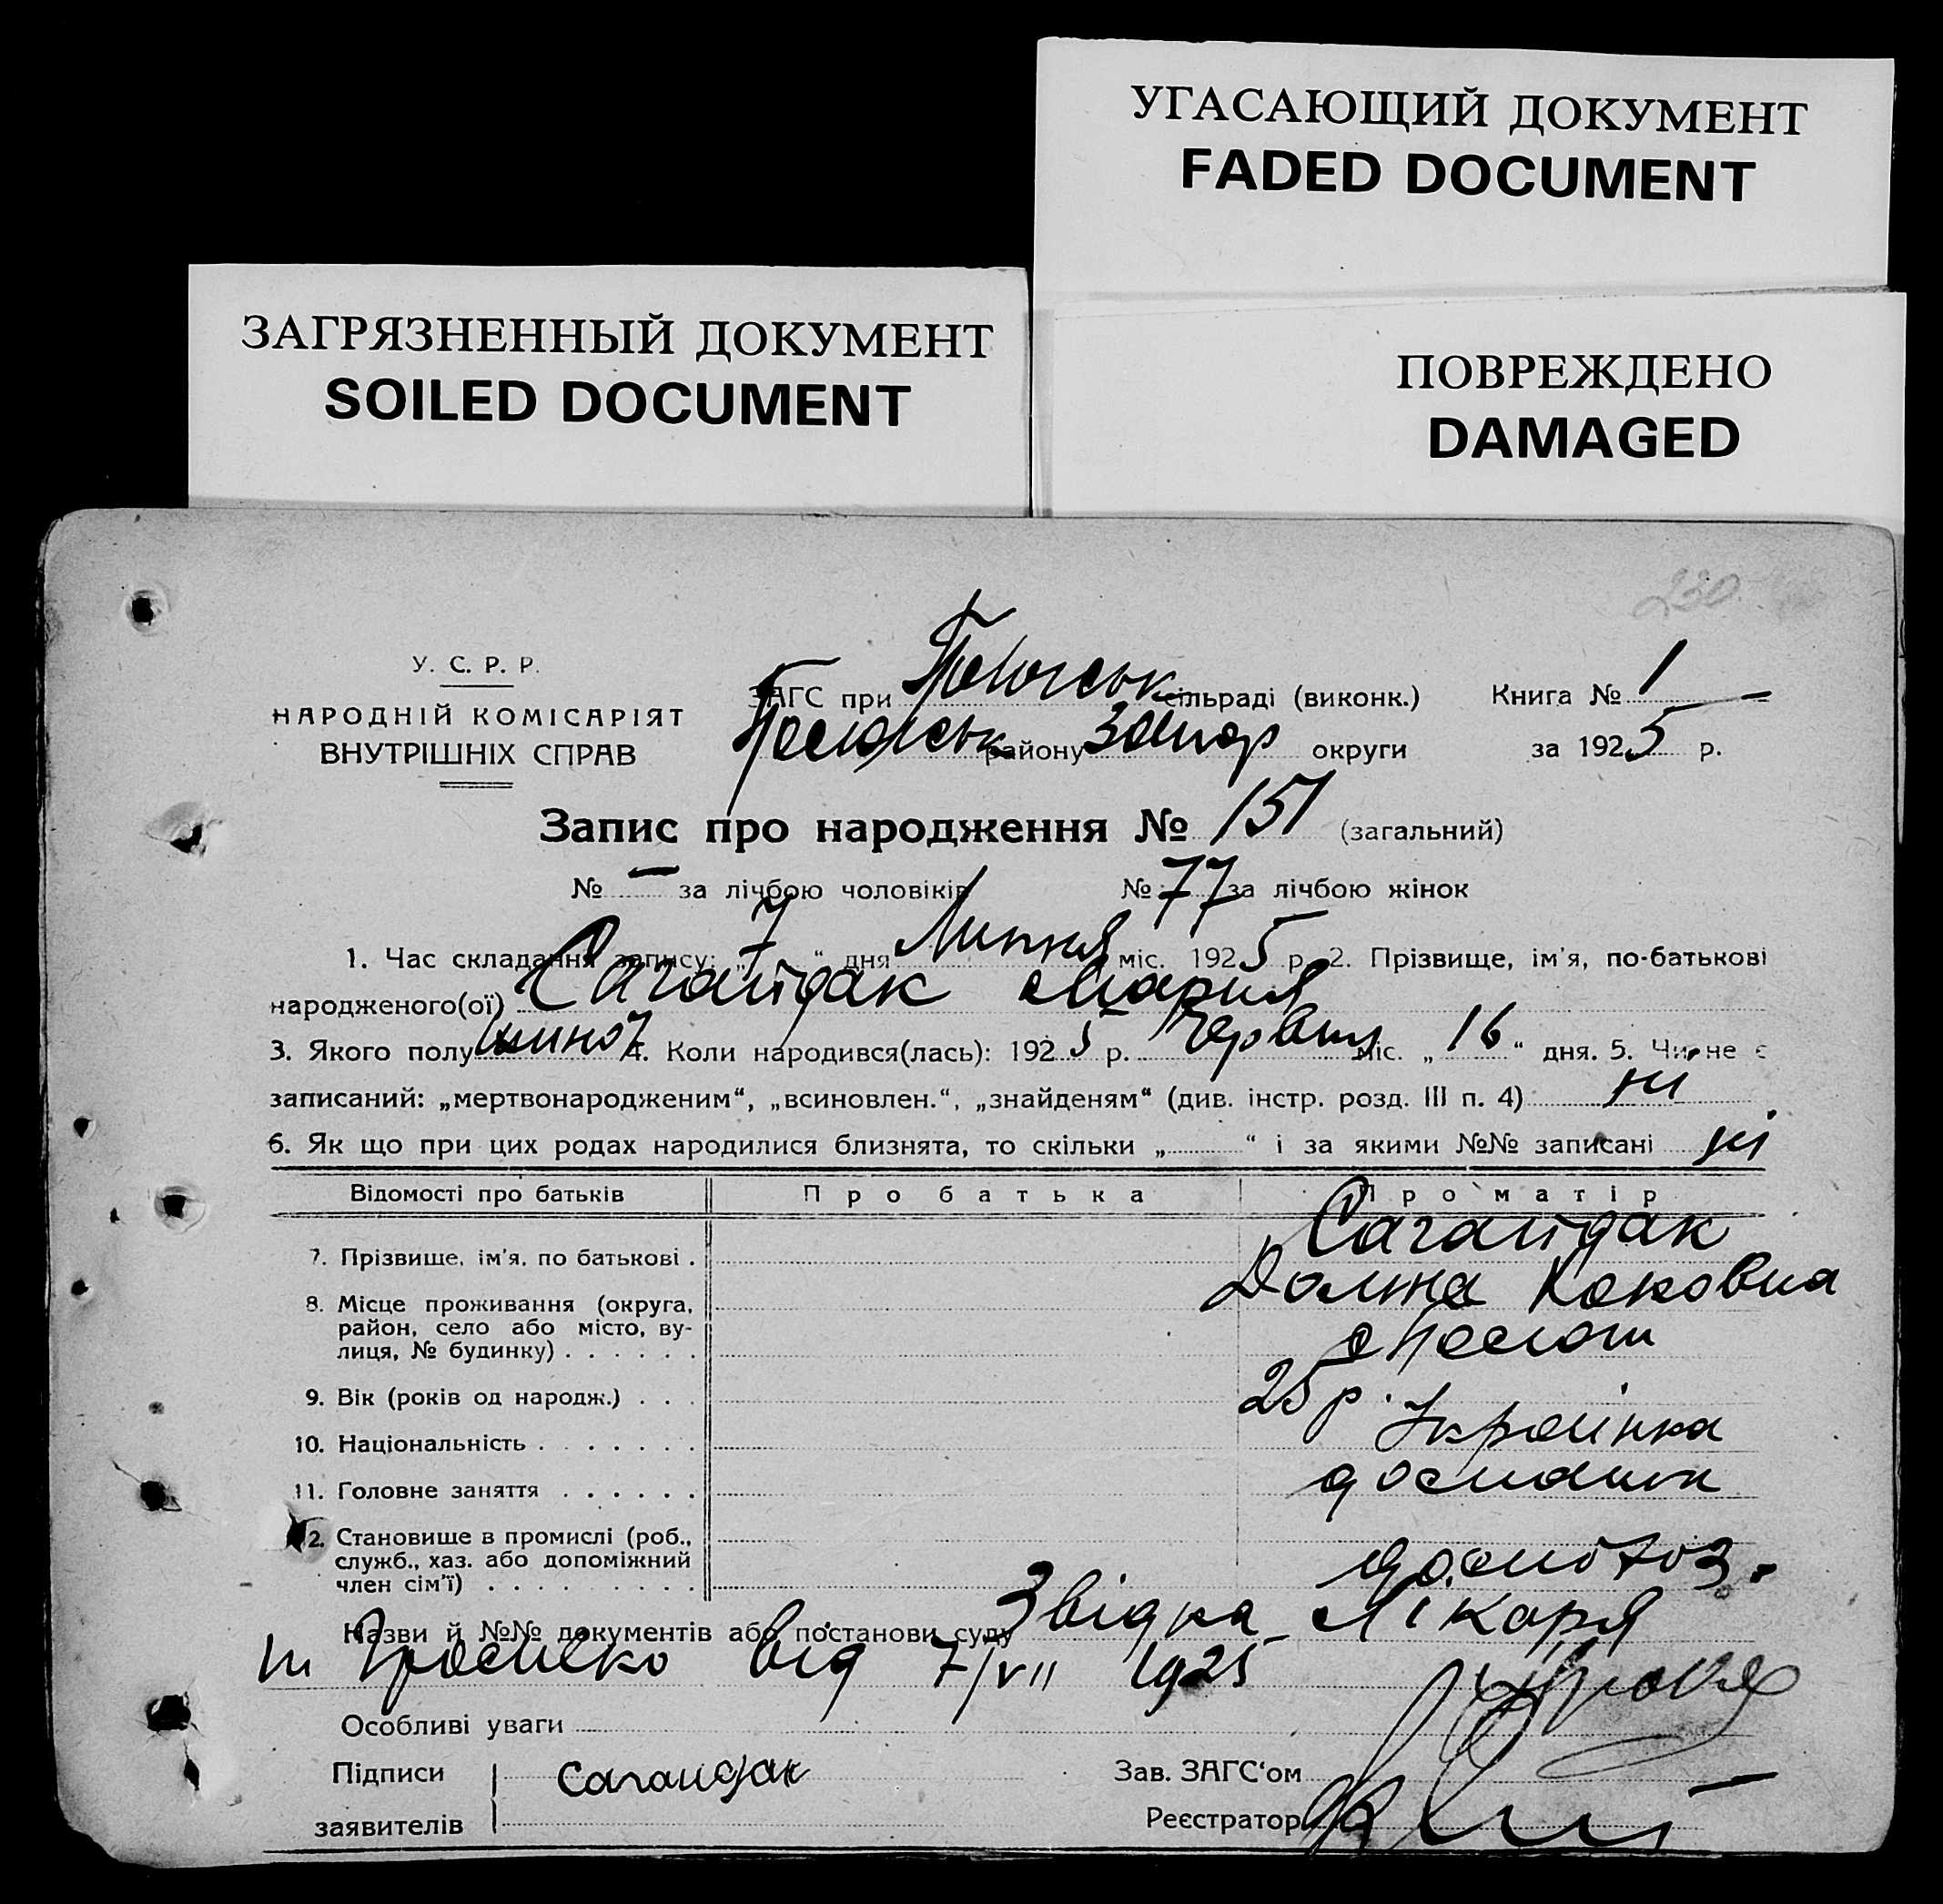 УГАСАЮЩИЙ ДОКУМЕНТ
FADED DOCUMENT
ЗАГРЯЗНЕННЫЙ ДОКУМЕНТ
SOILED DOCUMENT
ПОВРЕЖДЕНО
DAMAGED
230.
У. С. Р. Р.
НАРОДНІЙ КОМІСАРІЯТ
ВНУТРІШНІХ СПРАВ
ЗАГС при сільраді (виконк.) Книга № 1
району Запор округи за 1925 р.
Запис про народження № 151 (загальний)
№ — за лічбою чоловіків № 77 за лічбою жінок
1. Час складання запису: „7“ дня Липня міс. 1925 р. 2. Прізвище, ім'я, по-батькові
народженого(ої) Сагайдак Мария
3. Якого полу жіноч 4. Коли народився(лась): 1925 р. Червня міс. „16“ дня. 5. Чи не є
записаний: „мертвонародженим“, „всиновлен.“, „знайденям“ (див. інстр. розд. III п. 4) ні
6. Як що при цих родах народилися близнята, то скільки „ “ і за якими №№ записані ні
Відомості про батьків Про батька Про матір
7. Прізвище, ім'я, по батькові . Сагайдак
8. Місце проживання (округа, район, село або місто, вулиця, № будинку) . . . . . .
9. Вік (років од народж.) . . . 25 р.
10. Національність . . . . . . . Українка
11. Головне заняття . . . . . .
12. Становище в промислі (роб., служб., хаз. або допоміжний член сім'ї) . . . . . . . . .
Назви й №№ документів або постанови суду Звідка Лікаря
від 7/VII 1925
Особливі уваги
Підписи Сагайдак Зав. ЗАГС'ом
заявителів Реєстратор